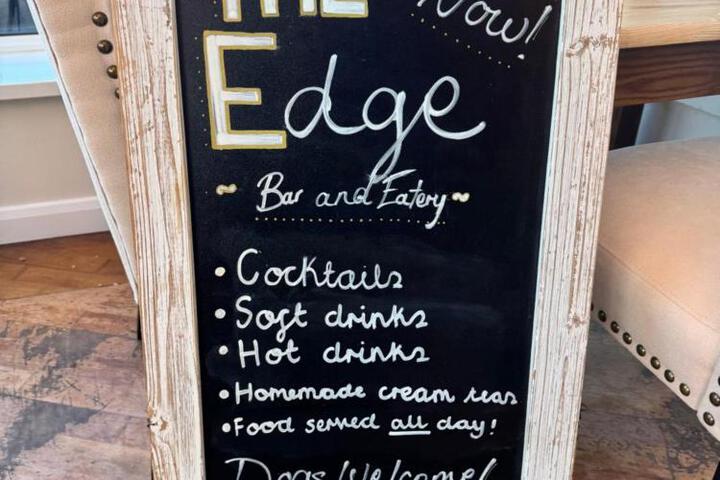 THE
Now!
Edge
~ Bar and Eatery ~
• Cocktails
• Soft drinks
• Hot drinks
• Homemade cream teas
• Food served all day!
Dogs Welcome!